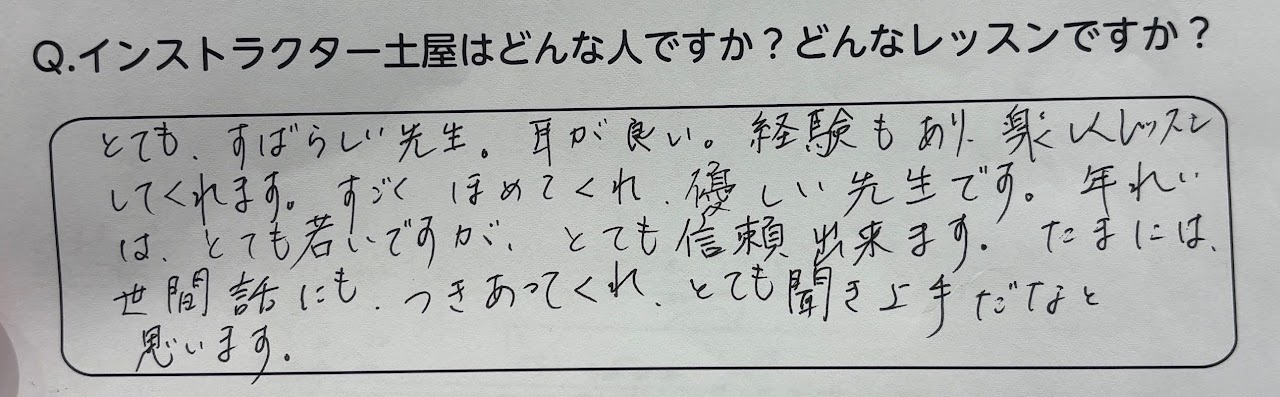 Q.インストラクター土屋はどんな人ですか？どんなレッスンですか？
とても、すばらしい先生。耳が良い。経験もあり、楽しくレッスン
してくれます。すごく ほめてくれ、優しい先生です。年れい
は、とても若いですが、とても信頼出来ます。たまには、
世間話にも、つきあってくれ、とても聞き上手だなと
思います。